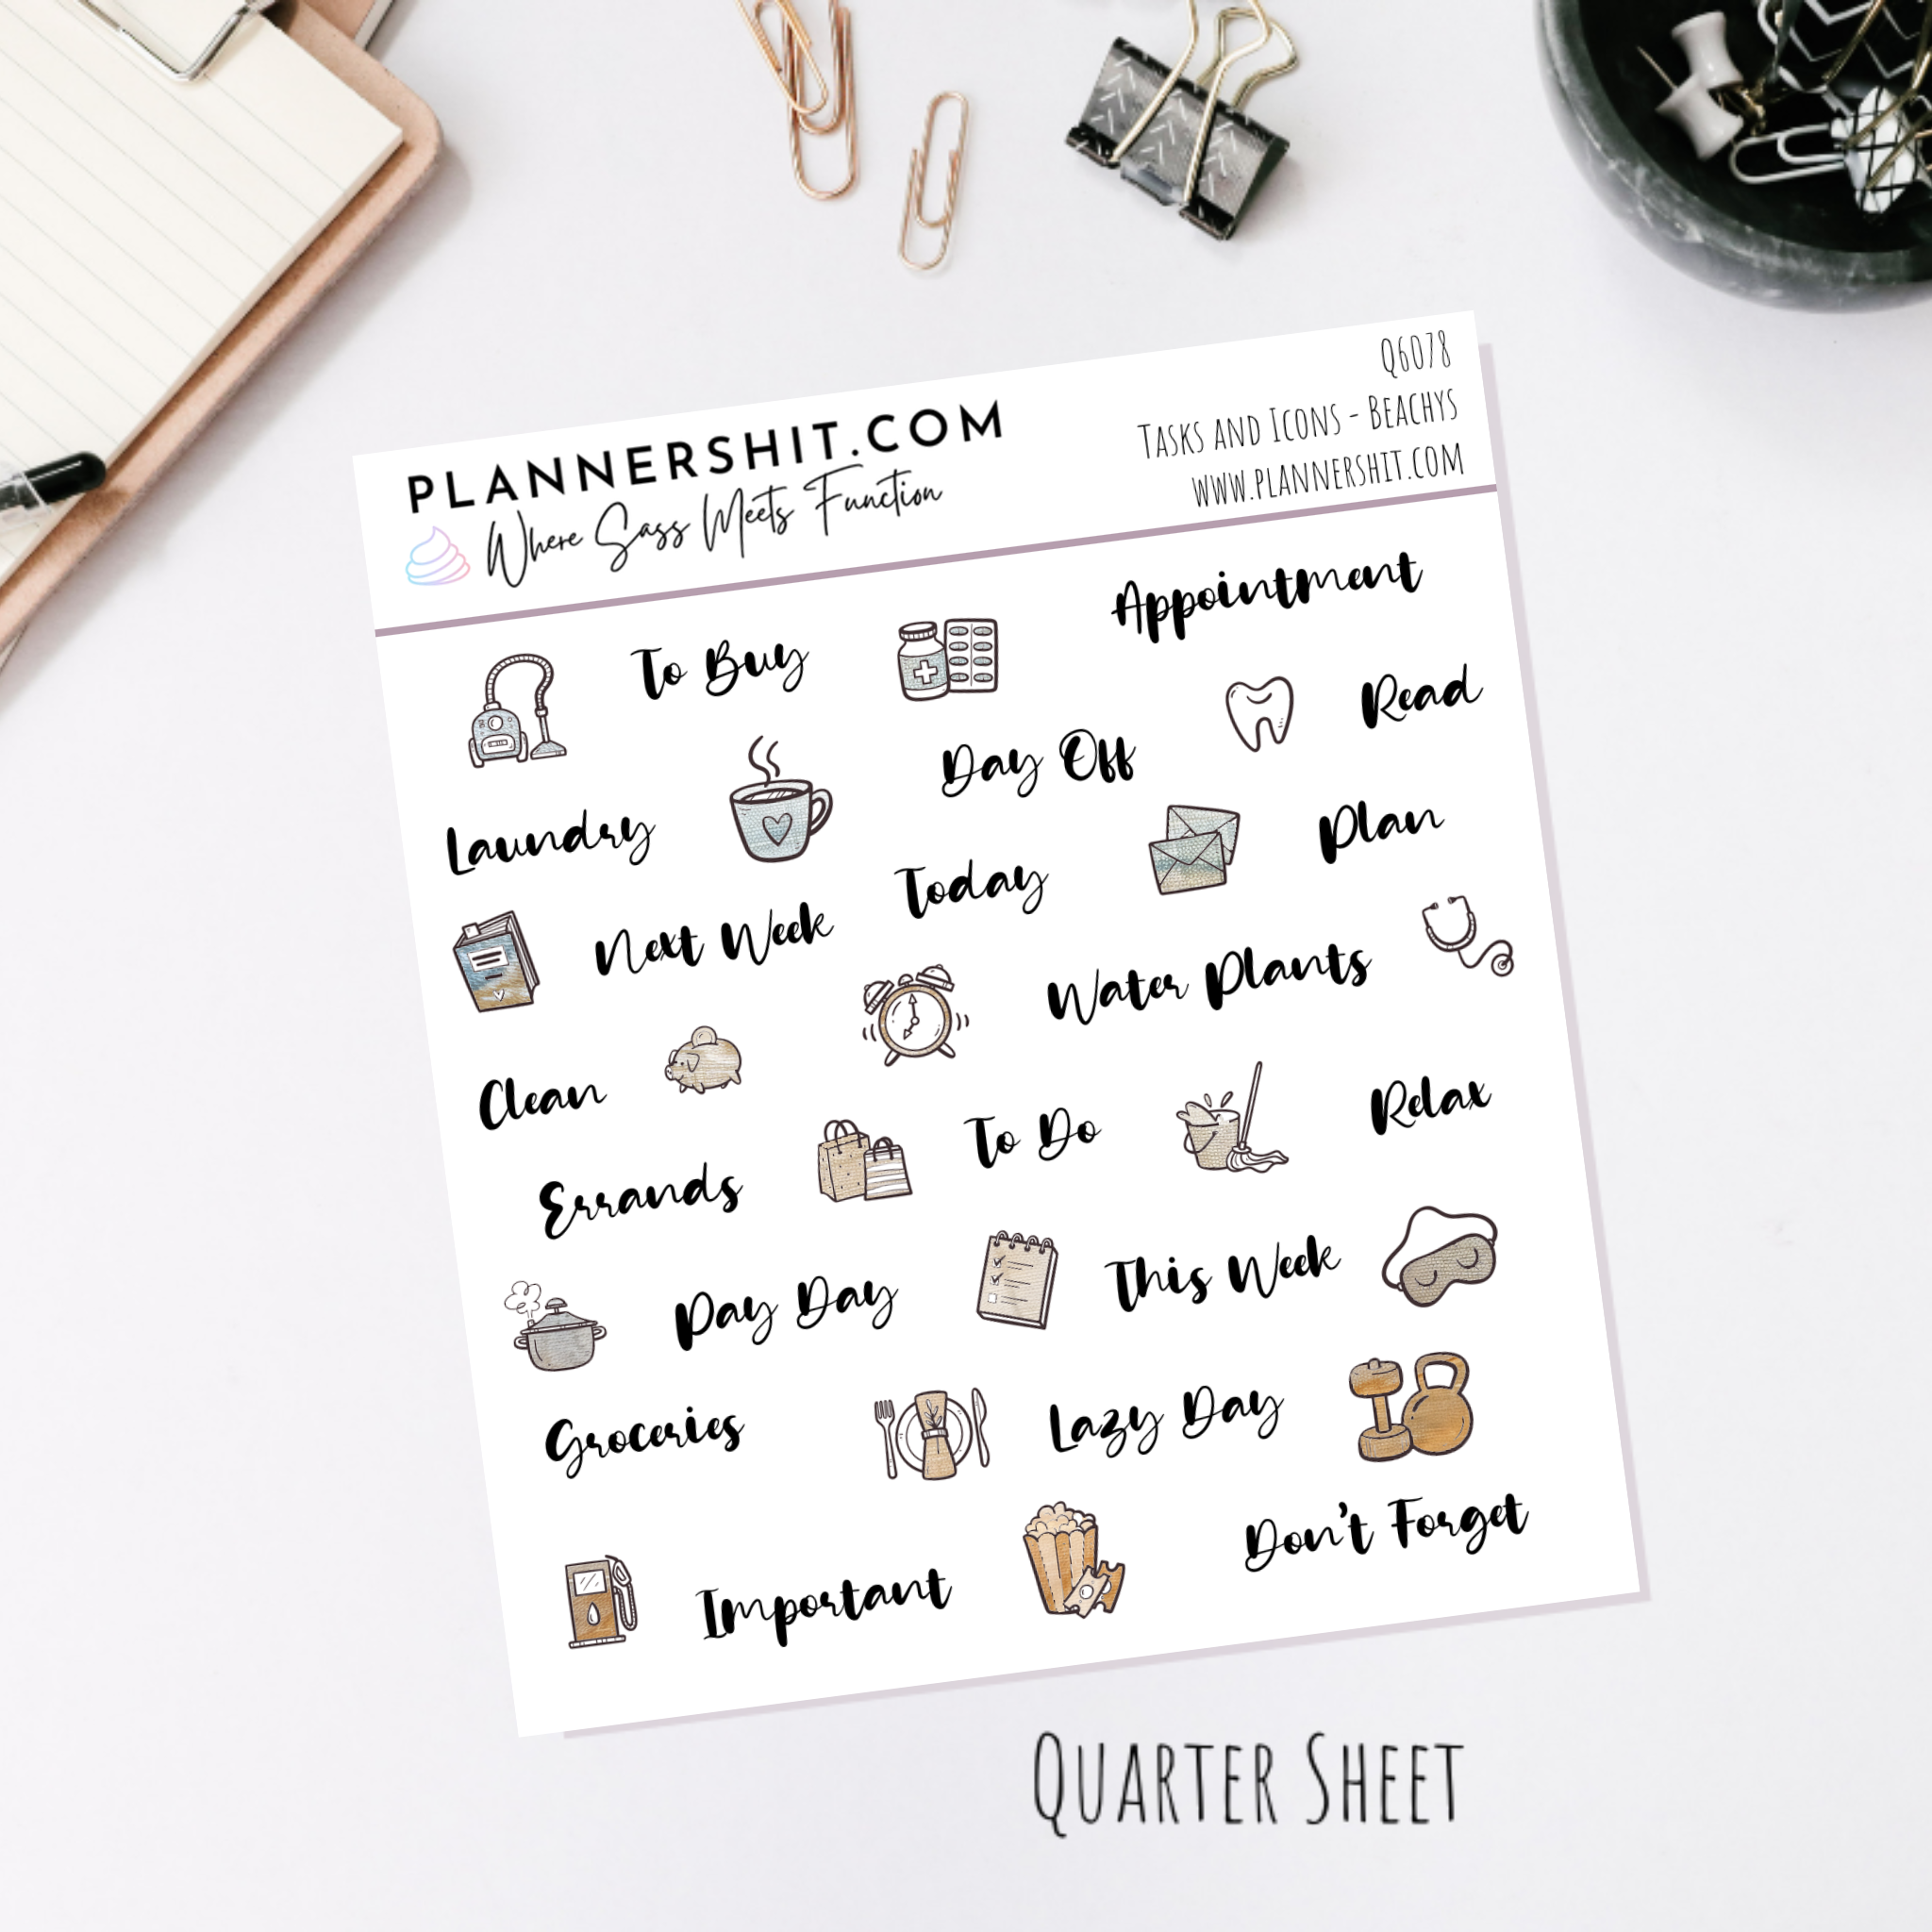 PLANNERSHIT.COM
Where Sass Meets Function
Q6078
Tasks and Icons - Beachys
www.plannershit.com
To Buy
Appointment
Read
Day Off
Laundry
Plan
Today
Next Week
Water Plants
Clean
To Do
Relax
Errands
This Week
Pay Day
Groceries
Lazy Day
Important
Don't Forget
Quarter Sheet